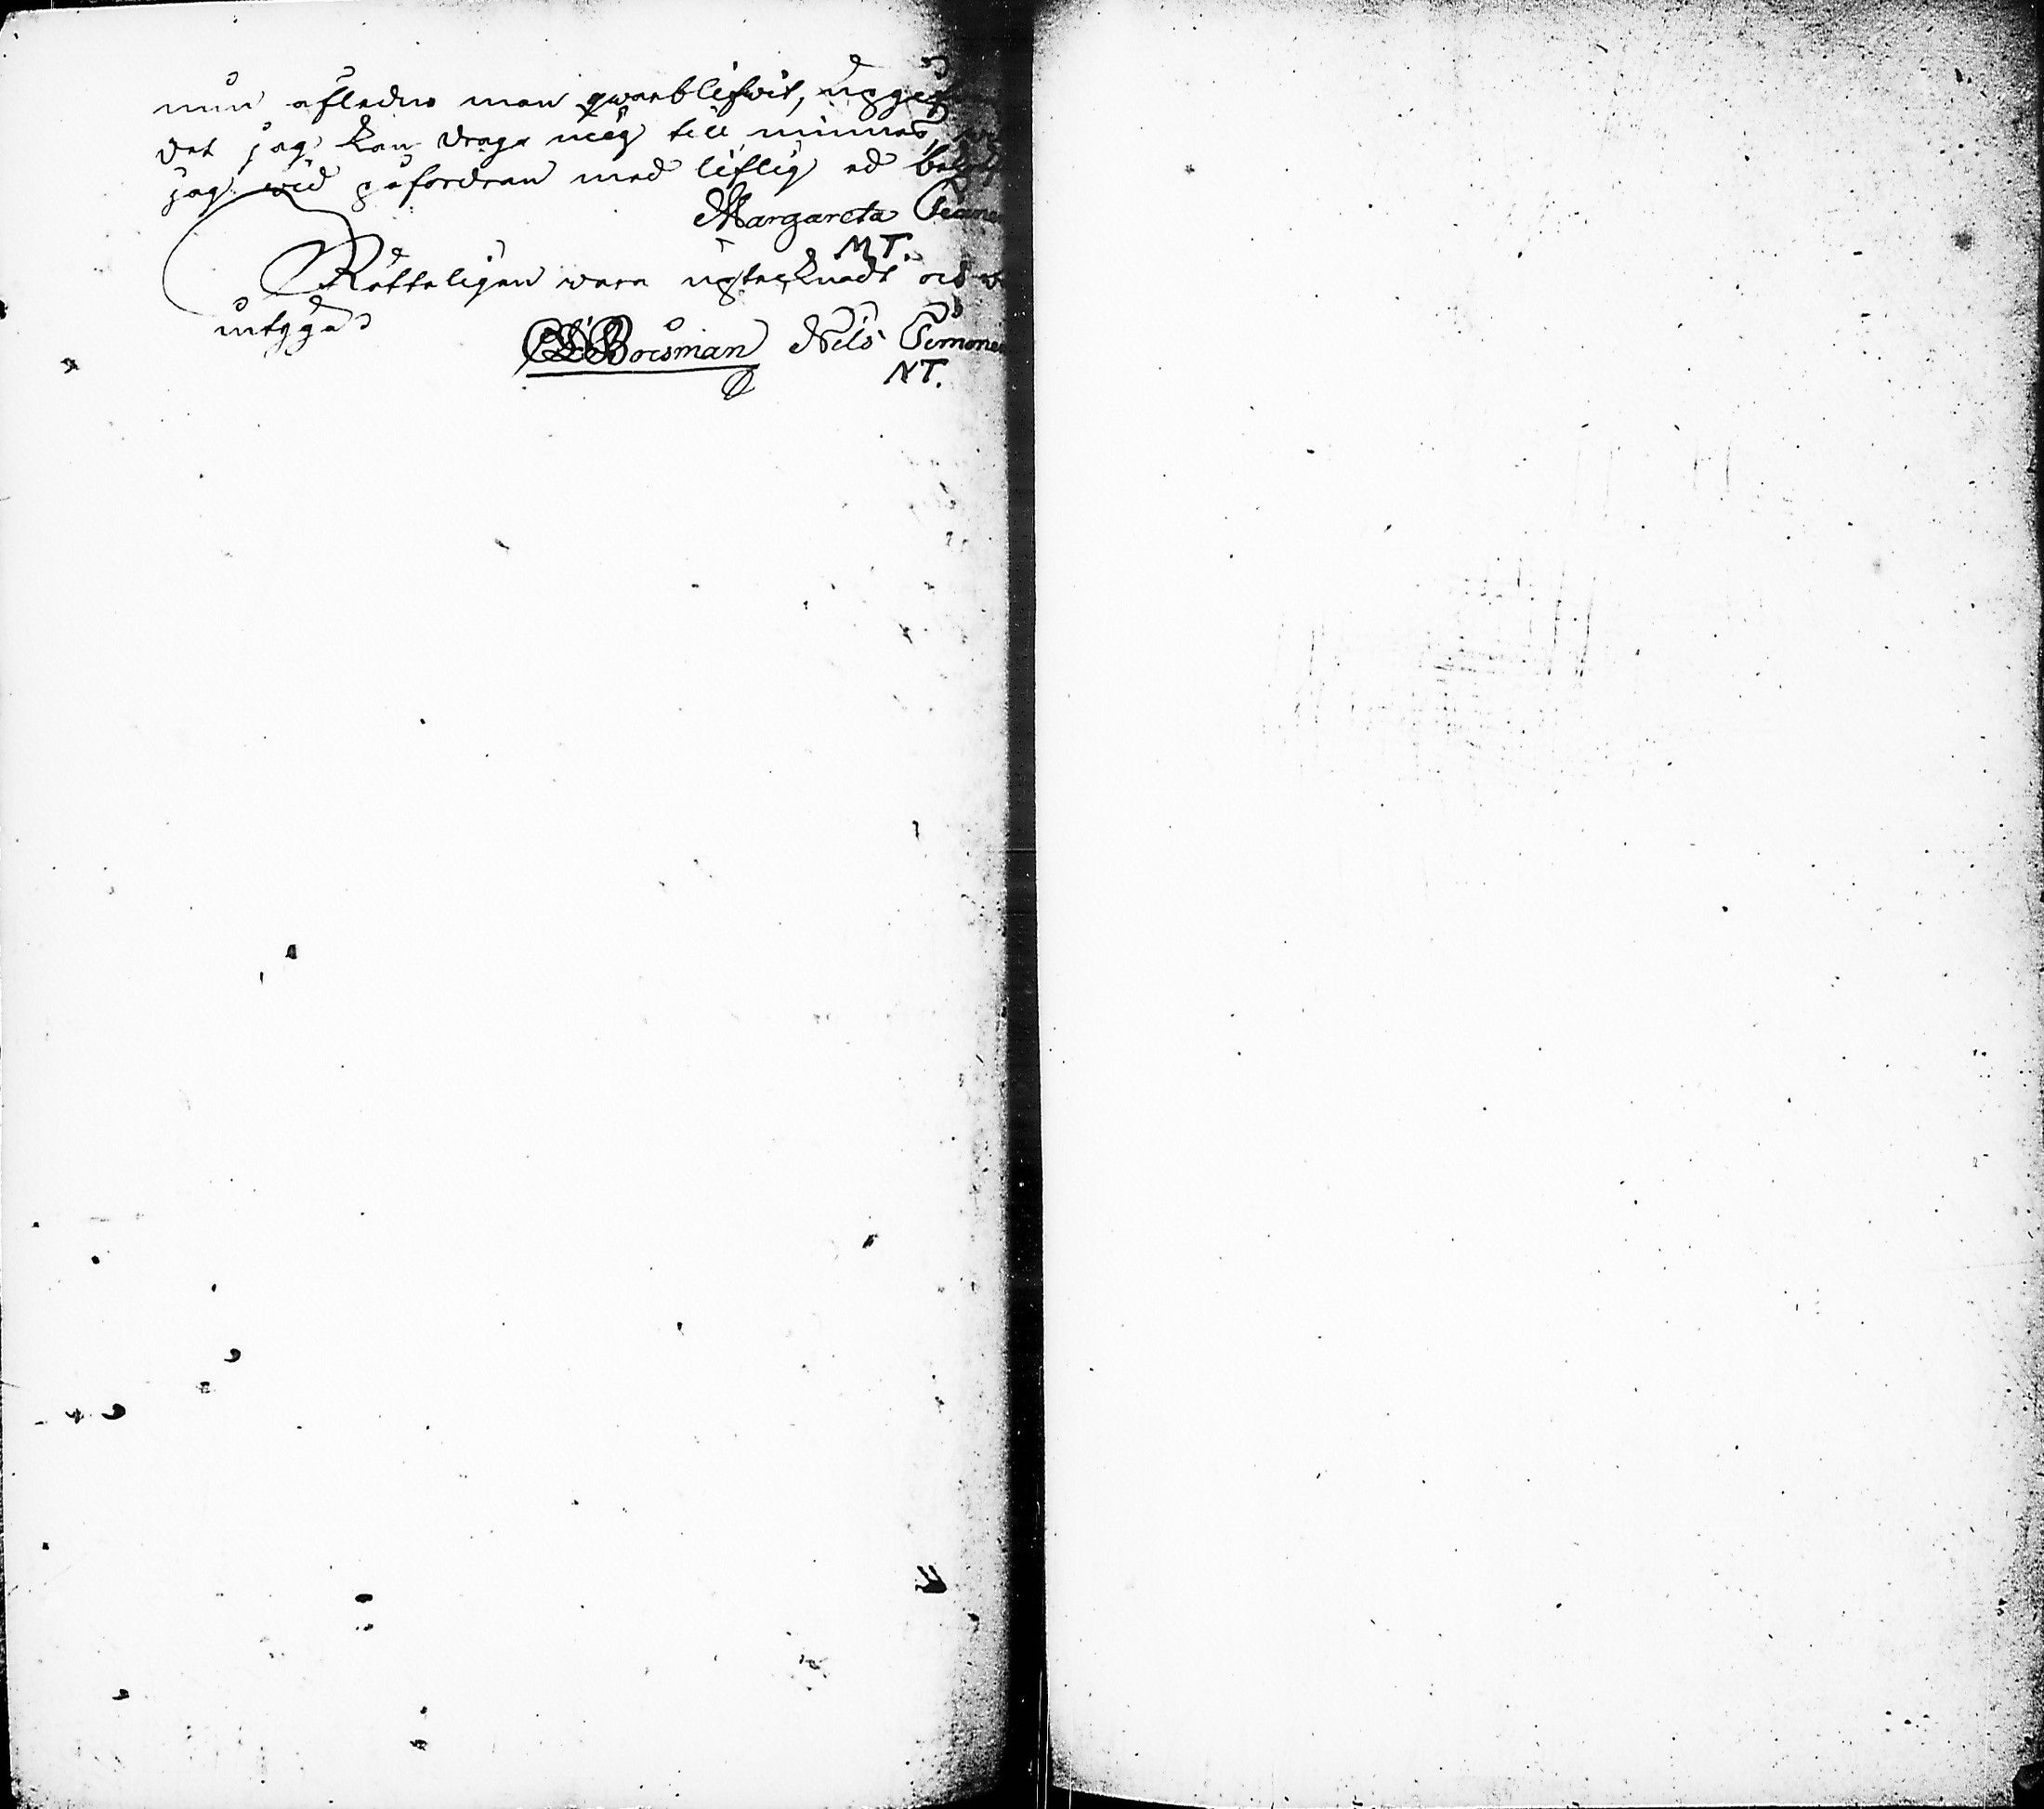 min afledne man qwarblifwit, upgif
det jag kan draga mig till minnes,
jag wid påfordran med liflig ed
Margareta
M T.
Rätteligen wara uptecknadt och
intyga
Boisman Nils Simon
N T.